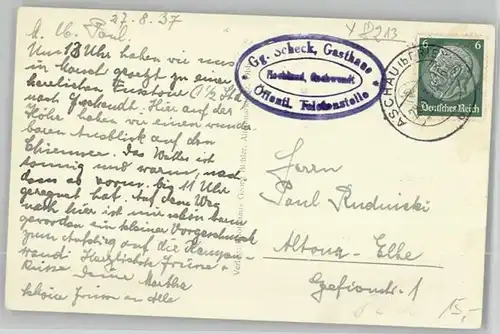 27.8.37
M. lb. Paul.
Um 13 Uhr haben wir uns
in Marsch gesetzt zu einer
herrlichen Fusstour
nach Gschwendt. Hier auf der
Höhe haben wir einen wunder-
baren Ausblick auf den
Chiemsee. Das Wetter ist
sonnig und warm, nach-
dem es vorm. bis 11 Uhr
geregnet hat. Auf dem Weg
nach hier ist mir schon
geworden ein kleiner Vorgeschmack
zum Aufstieg auf die Kampen-
wand! Herzlichste Grüsse +
Küsse Deine Martha
schöne Grüsse an Alle
Gg. Scheck, Gasthaus
Hochland, Gschwendt
Öffentl. Telefonstelle
6 6
Deutsches Reich
ASCHAU
Herrn
Paul Rudnicki
Altona-Elbe
Gefionstr. 1
15,-